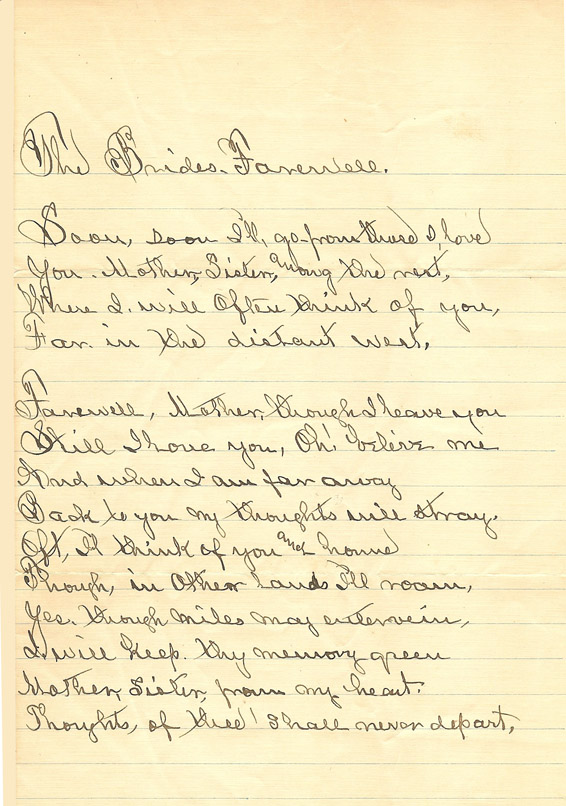 The Brides. Farewell.
Soon, soon I'll, go from those I, love
You. Mother, Sister, among the rest,
Where I. will Often think of you,
Far. in the distant west,
Farewell, Mother, though I leave you
Still I love you, Oh! beleive me
And when I am far away
Back to you my thoughts will stray.
Oft, I'll think of you and home
Though, in Other lands I'll roam,
Yes. though miles may entervein,
I. will keep. thy memory green
Mother, Sister, from my heart.
Thoughts, of thee! shall never depart,